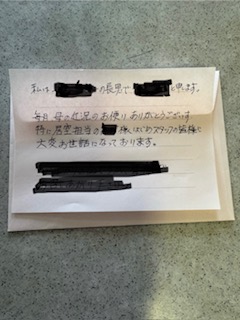 私は の長男で と申します。
毎月 母の状況のお便りありがとうございます
特に居室担当の 様はじめスタッフの皆様に
大変お世話になっております。